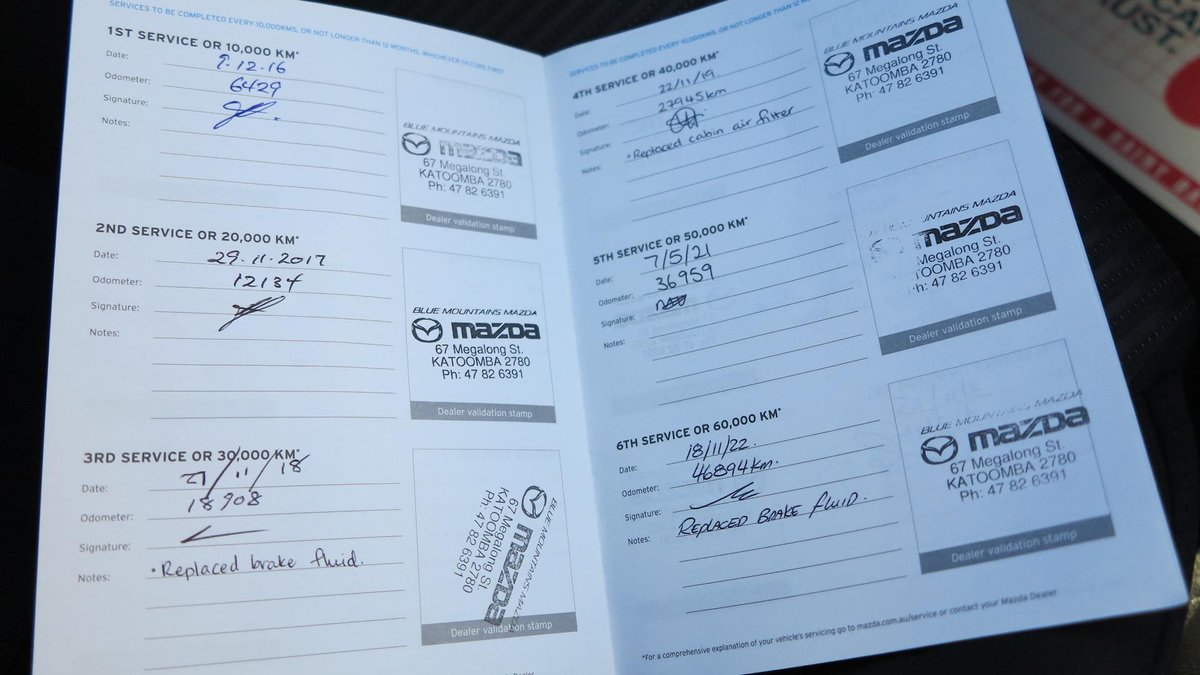 SERVICES TO BE COMPLETED EVERY 10,000KMS, OR NOT LONGER THAN 12 MONTHS, WHICHEVER OCCURS FIRST
1ST SERVICE OR 10,000 KM*
Date: 12.16
Odometer: 6429
Signature:
Notes:
BLUE MOUNTAINS MAZDA
mazda
67 Megalong St.
KATOOMBA 2780
Ph: 47 82 6391
Dealer validation stamp
2ND SERVICE OR 20,000 KM*
Date: 29.11.2017
Odometer: 12134
Signature:
Notes:
BLUE MOUNTAINS MAZDA
mazda
67 Megalong St.
KATOOMBA 2780
Ph: 47 82 6391
Dealer validation stamp
3RD SERVICE OR 30,000 KM*
Date: 27/11/18
Odometer: 18908
Signature:
Notes: • Replaced brake fluid.
BLUE MOUNTAINS MAZDA
mazda
67 Megalong St.
KATOOMBA 2780
Ph: 47 82 6391
Dealer validation stamp
Dealer
SERVICES TO BE COMPLETED EVERY 10,000KMS, OR NOT LONGER THAN 12
4TH SERVICE OR 40,000 KM*
Date: 22/11/19.
Odometer: 27945km
Signature:
Notes: • Replaced cabin air filter
BLUE MOUNTAINS MAZDA
mazda
67 Megalong St.
KATOOMBA 2780
Ph: 47 82 6391
Dealer validation stamp
5TH SERVICE OR 50,000 KM*
Date: 7/5/21
Odometer: 36959
Signature:
Notes:
UNTAINS MAZDA
mazda
Megalong St.
TOOMBA 2780
h: 47 82 6391
Dealer validation stamp
6TH SERVICE OR 60,000 KM*
Date: 18/11/22.
Odometer: 46894km.
Signature:
Notes: REPLACED BRAKE FLUID.
BLUE MOUNTAINS MAZDA
mazda
67 Megalong St.
KATOOMBA 2780
Ph: 47 82 6391
Dealer validation stamp
*For a comprehensive explanation of your vehicle's servicing go to mazda.com.au/service or contact your Mazda Dealer
CA
RUST.
FOR A RAINY